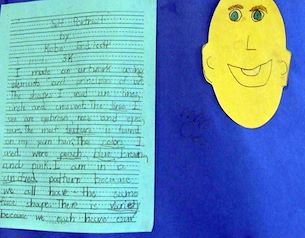 Self Portrait
by
3R
I made an artwork using
elements and principles of art.
The shapes I used are lines,
circle and crescent. The lines I
use are eyebrow, nose and eyes,
ears. The most texture is turned
on my yarn hair. The colors I
used were peach, blue, brown,
and pink. I am in a
pattern because
we all have the same
face shape. There is variety
because we each have our